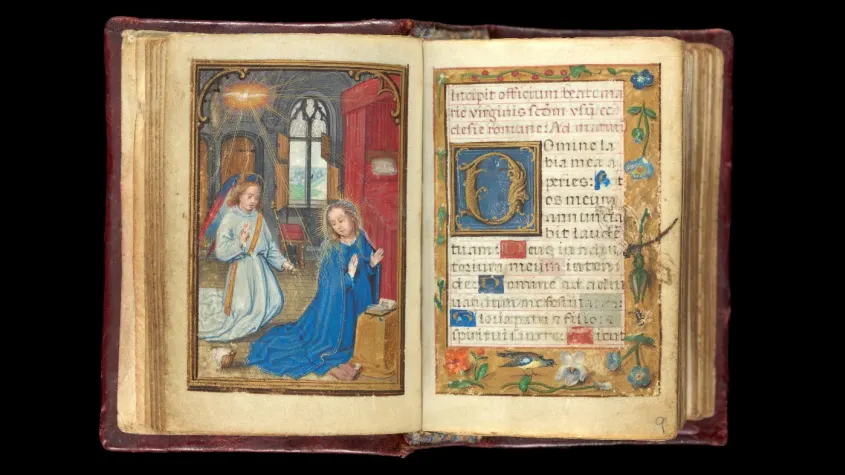 Incipit officium beate ma
rie virginis scdm usū ec
clesie romane: Ad matuti
Domine la
bia mea a
peries: Et
os meum
annuncia
bit laudē
tuam: Deus in adiu
torium meum inten
de: Domine ad adiu
uandum me festina:
Gloria patri et filio:
spiritui sancto: Sicut
9